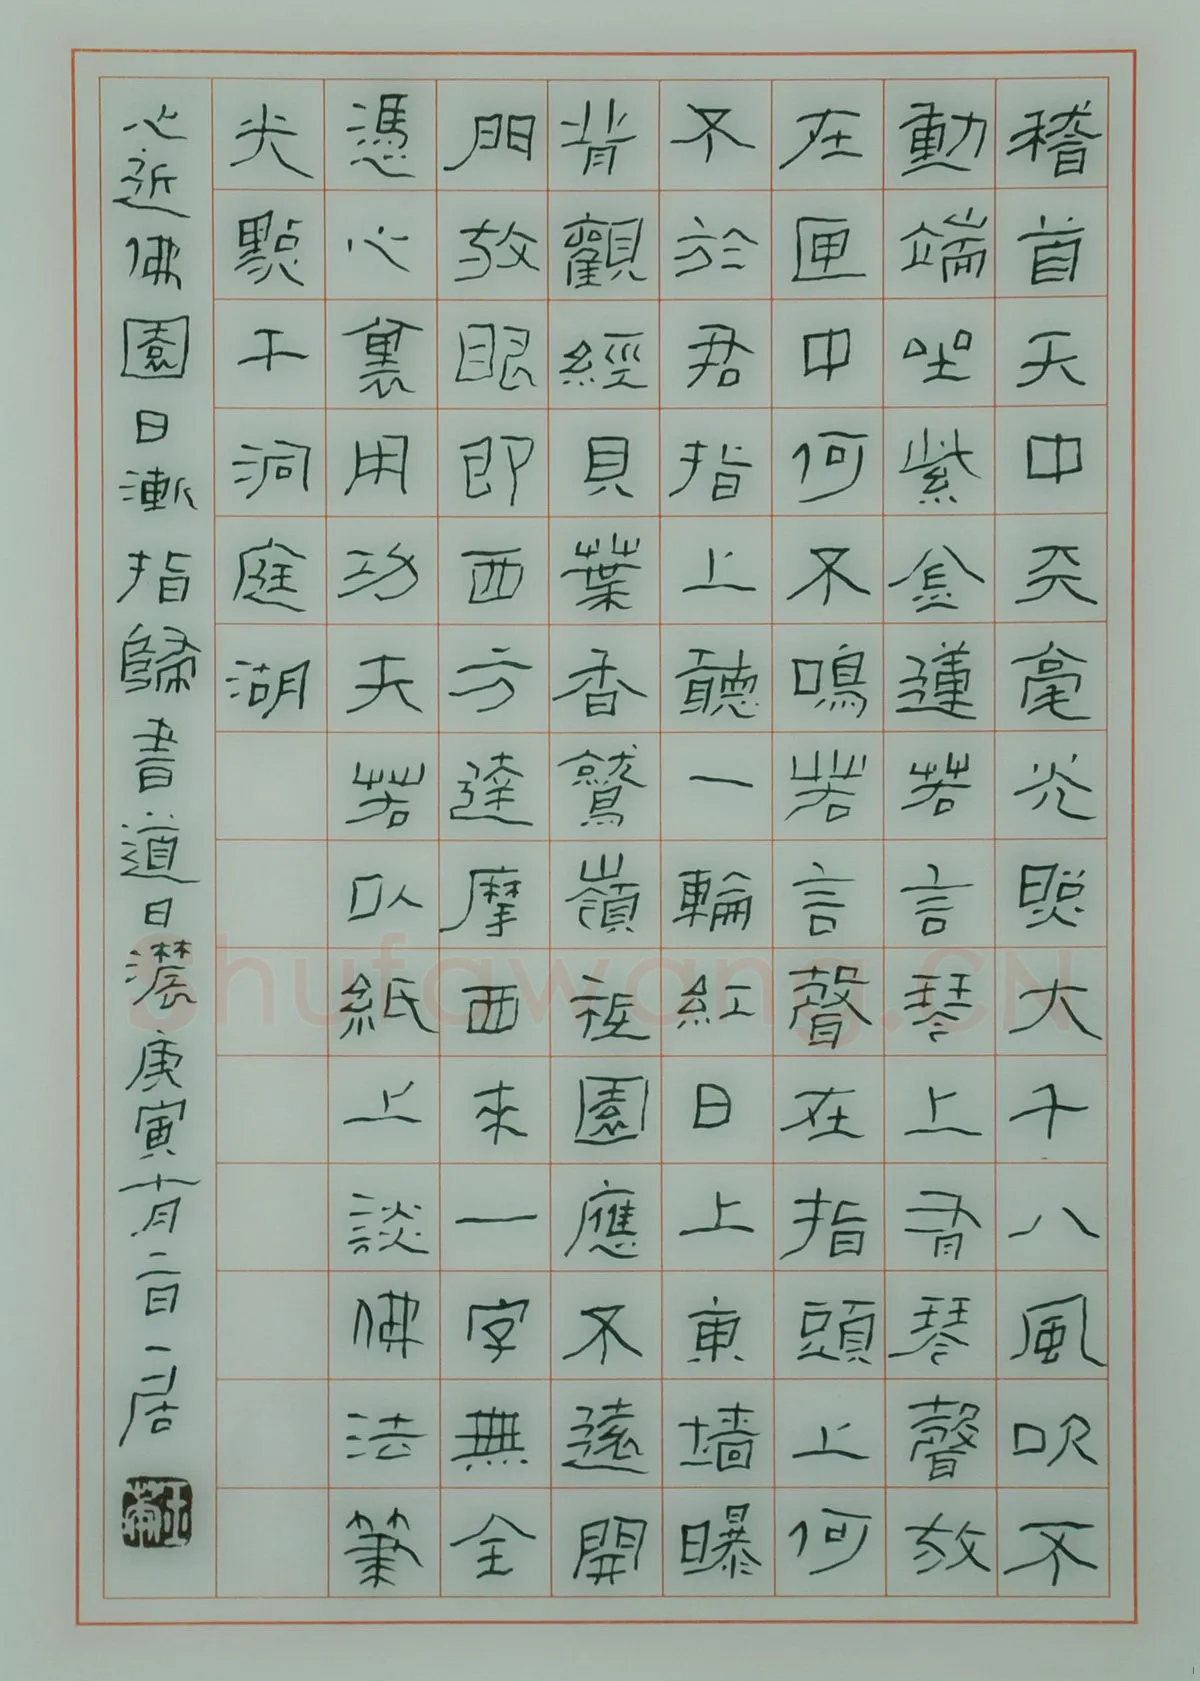 稽首天中天毫光照大千八風吹不
動端坐紫金蓮若言琴上有琴聲放
在匣中何不鳴若言聲在指頭上何
不於君指上聽一輪紅日上東墙曝
背觀經貝葉香鷲嶺祇園應不遠開
門放眼即西方達摩西來一字無全
憑心裏用功夫若以紙上談佛法筆
尖點干洞庭湖
心近佛園日漸指歸書道日濃庚寅十月二日一居
Shufawang.CN